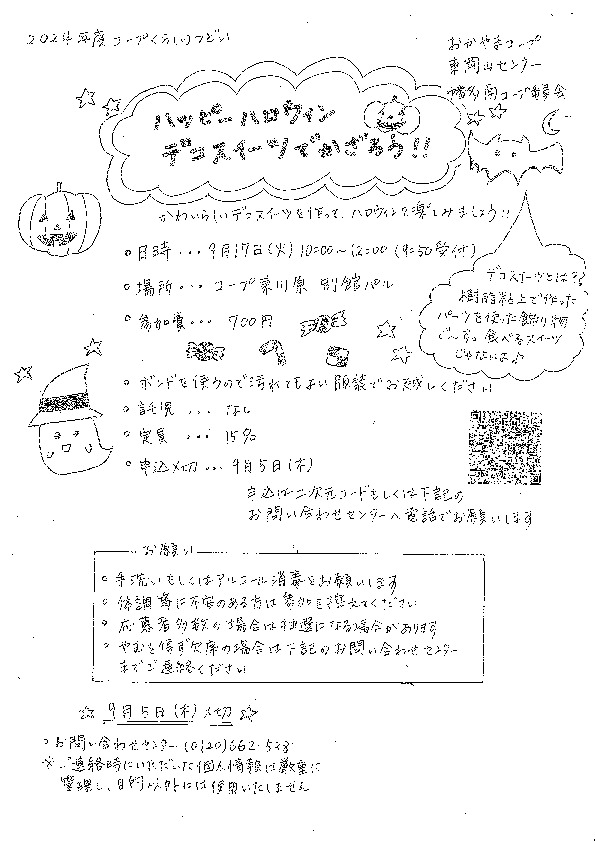 2024年度 コープくらしのつどい
おかやまコープ
東岡山センター
幡多南コープ委員会
ハッピーハロウィン
デコスイーツでかざろう!!
かわいらしいデコスイーツを作って、ハロウィンを楽しみましょう!!
○日時・・・9月17日(火) 10:00〜12:00 (9:50受付)
○場所・・・コープ東川原 別館パル
○参加費・・・700円
デコスイーツとは??
樹脂粘土で作った
パーツを使った飾り物
で〜す。食べるスイーツ
じゃないよ♪
○ボンドを使うので汚れてもよい服装でお越しください
○託児 ・・・ なし
○定員 ・・・ 15名
○申込〆切・・・9月5日(木)
申込は二次元コードもしくは下記の
お問い合わせセンターへ電話でお願いします
お願い
○手洗いもしくはアルコール消毒をお願いします
○体調等に不安のある方は参加を控えてください
○応募者多数の場合は抽選になる場合があります
○やむを得ず欠席の場合は下記のお問い合わせセンター
までご連絡ください
☆ 9月5日(木)〆切 ☆
○お問い合わせセンター (0120)662-533
※ご連絡時にいただいた個人情報は厳重に
管理し、目的以外には使用いたしません